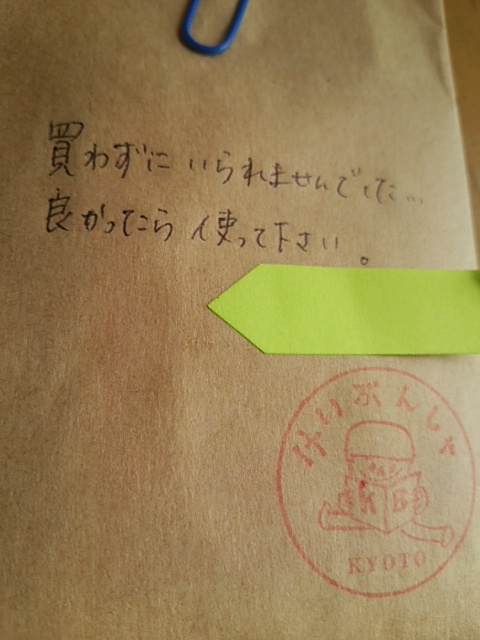 買わずにいられませんでした…
良かったら使って下さい。
けいぶんしゃ
KB
KYOTO